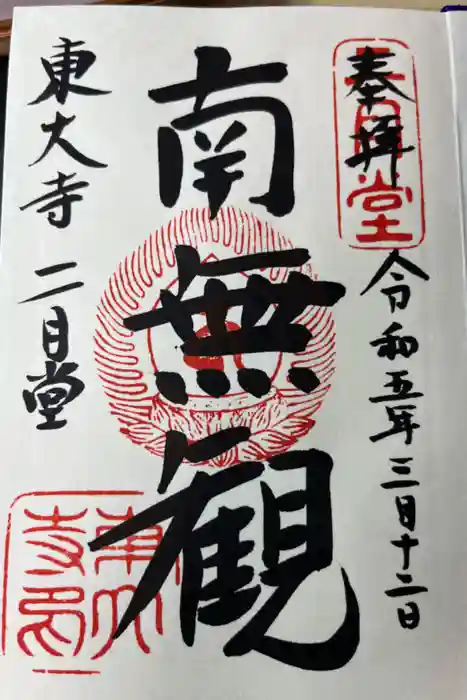 奉拝
二月堂
令和五年三月十二日
南無観
東大寺 二月堂
東大寺印